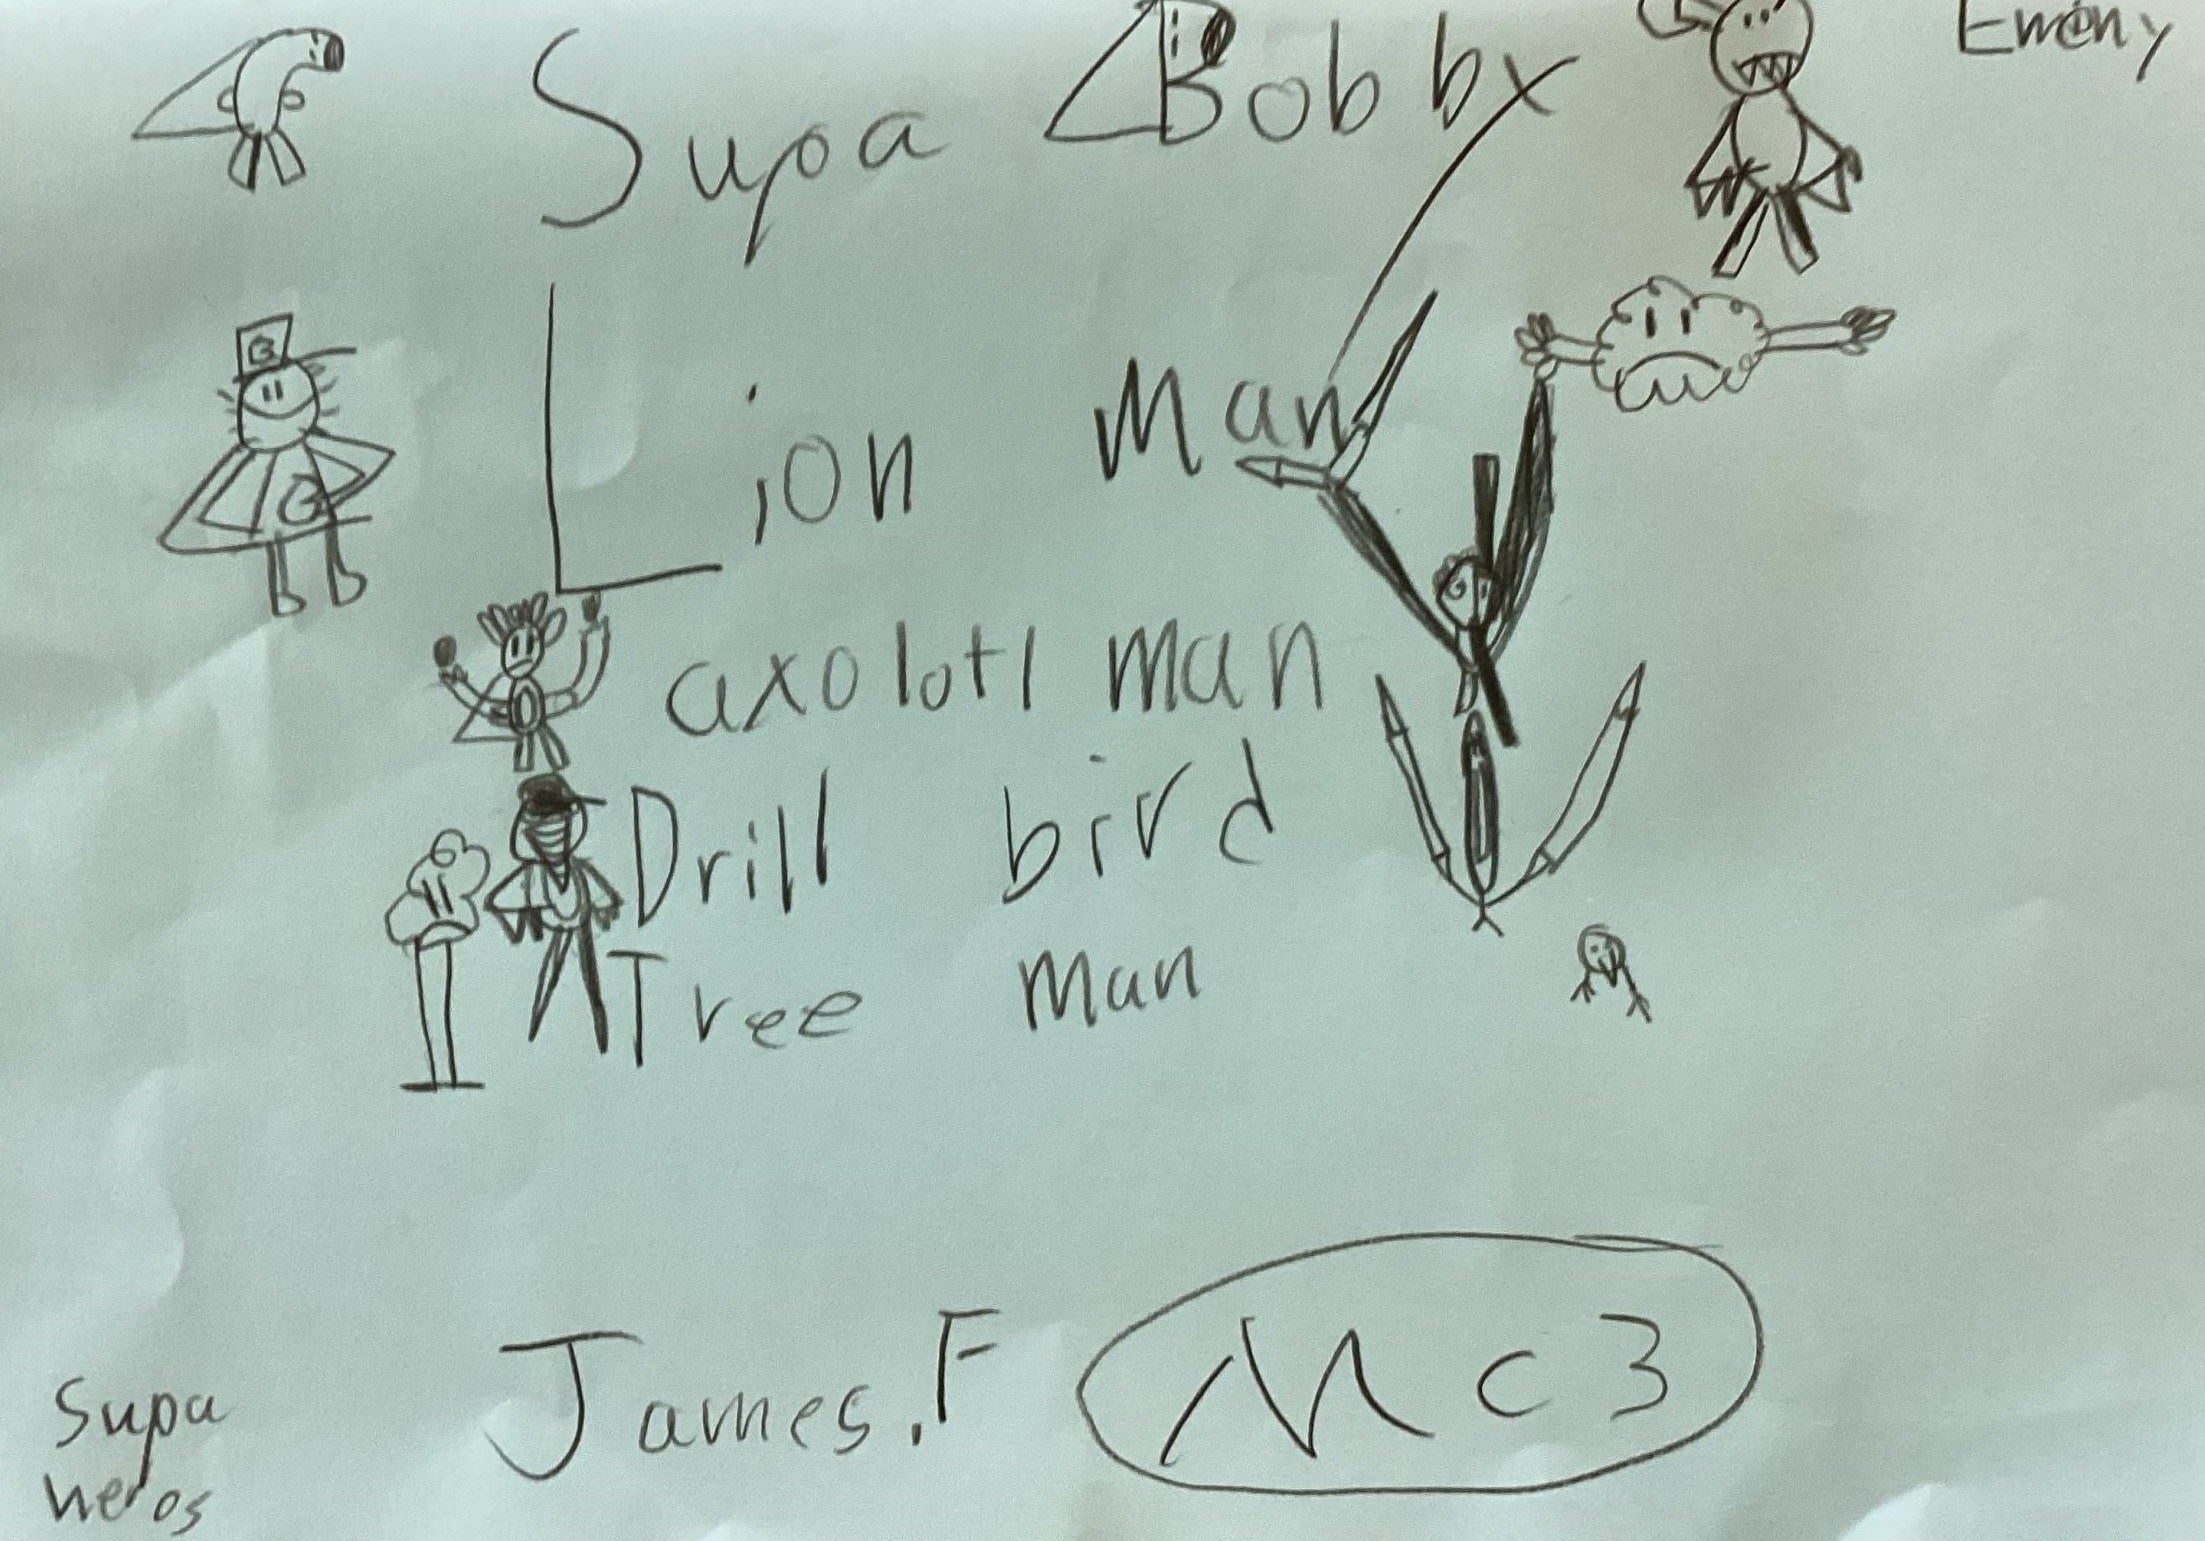 Supa Bobby
Emeny
Lion Man
axolotl man
Drill bird
Tree Man
James.F Mc3
Supa
heros